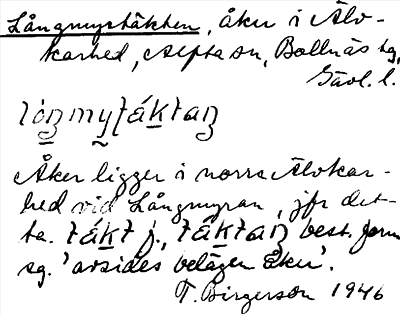 Långmyrtäkten, åker i Älv-
karhed, Alfta sn, Bollnäs tg,
Gävl. l.
Åker ligger i norra Älvkar-
hed vid Långmyran, jfr det-
ta. tákt f., táktaŋ best. form
sg. 'avsides belägen åker'.
T. Birgerson 1946